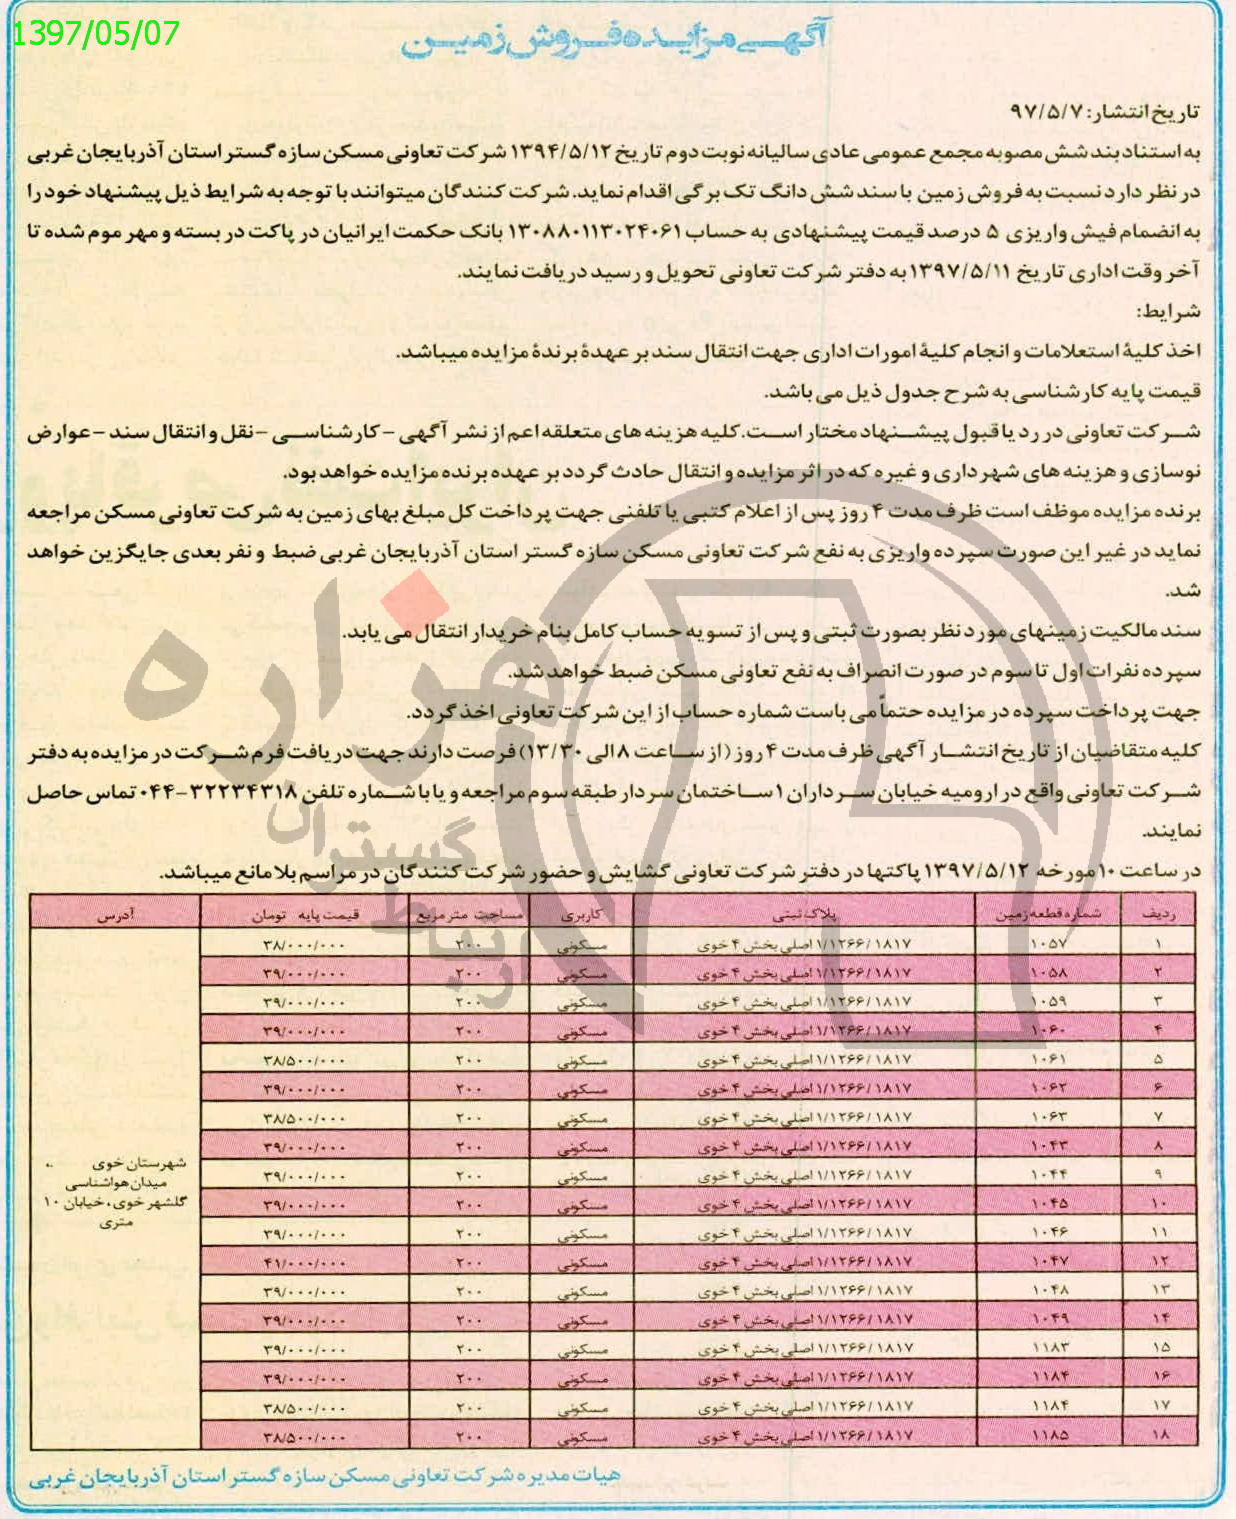 1397/05/07
آگهی مزایده فروش زمین
تاریخ انتشار: ۹۷/۵/۷
به استناد بند شش مصوبه مجمع عمومی عادی سالیانه نوبت دوم تاریخ ۱۳۹۴/۵/۱۲ شرکت تعاونی مسکن سازه گستر استان آذربایجان غربی
در نظر دارد نسبت به فروش زمین با سند شش دانگ تک برگی اقدام نماید. شرکت کنندگان میتوانند با توجه به شرایط ذیل پیشنهاد خود را
به انضمام فیش واریزی ۵ درصد قیمت پیشنهادی به حساب ۱۳۰۸۸۰۱۱۳۰۲۴۰۶۱ بانک حکمت ایرانیان در پاکت در بسته و مهر موم شده تا
آخر وقت اداری تاریخ ۱۳۹۷/۵/۱۱ به دفتر شرکت تعاونی تحویل و رسید دریافت نمایند.
شرایط:
اخذ کلیهٔ استعلامات و انجام کلیهٔ امورات اداری جهت انتقال سند بر عهدهٔ برندهٔ مزایده میباشد.
قیمت پایه کارشناسی به شرح جدول ذیل می باشد.
شرکت تعاونی در رد یا قبول پیشنهاد مختار است. کلیه هزینه های متعلقه اعم از نشر آگهی – کارشناسی – نقل و انتقال سند – عوارض
نوسازی و هزینه های شهرداری و غیره که در اثر مزایده و انتقال حادث گردد بر عهده برنده مزایده خواهد بود.
برنده مزایده موظف است ظرف مدت ۴ روز پس از اعلام کتبی یا تلفنی جهت پرداخت کل مبلغ بهای زمین به شرکت تعاونی مسکن مراجعه
نماید در غیر این صورت سپرده واریزی به نفع شرکت تعاونی مسکن سازه گستر استان آذربایجان غربی ضبط و نفر بعدی جایگزین خواهد
شد.
سند مالکیت زمینهای مورد نظر بصورت ثبتی و پس از تسویه حساب کامل بنام خریدار انتقال می یابد.
سپرده نفرات اول تا سوم در صورت انصراف به نفع تعاونی مسکن ضبط خواهد شد.
جهت پرداخت سپرده در مزایده حتماً می باست شماره حساب از این شرکت تعاونی اخذ گردد.
کلیه متقاضیان از تاریخ انتشار آگهی ظرف مدت ۴ روز (از ساعت ۸ الی ۱۳/۳۰) فرصت دارند جهت دریافت فرم شرکت در مزایده به دفتر
شرکت تعاونی واقع در ارومیه خیابان سرداران ۱ ساختمان سردار طبقه سوم مراجعه و یا با شماره تلفن ۳۲۲۳۴۳۱۸-۰۴۴ تماس حاصل
نمایند.
در ساعت ۱۰ مورخه ۱۳۹۷/۵/۱۲ پاکتها در دفتر شرکت تعاونی گشایش و حضور شرکت کنندگان در مراسم بلامانع میباشد.
ردیف شماره قطعه زمین پلاک ثبتی کاربری مساحت مترمربع قیمت پایه تومان آدرس
۱ ۱۰۵۷ ۱/۱۲۶۶/۱۸۱۷ اصلی بخش ۴ خوی مسکونی ۲۰۰ ۳۸/۰۰۰/۰۰۰
۲ ۱۰۵۸ ۱/۱۲۶۶/۱۸۱۷ اصلی بخش ۴ خوی مسکونی ۲۰۰ ۳۹/۰۰۰/۰۰۰
۳ ۱۰۵۹ ۱/۱۲۶۶/۱۸۱۷ اصلی بخش ۴ خوی مسکونی ۲۰۰ ۳۹/۰۰۰/۰۰۰
۴ ۱۰۶۰ ۱/۱۲۶۶/۱۸۱۷ اصلی بخش ۴ خوی مسکونی ۲۰۰ ۳۹/۰۰۰/۰۰۰
۵ ۱۰۶۱ ۱/۱۲۶۶/۱۸۱۷ اصلی بخش ۴ خوی مسکونی ۲۰۰ ۳۸/۵۰۰/۰۰۰
۶ ۱۰۶۲ ۱/۱۲۶۶/۱۸۱۷ اصلی بخش ۴ خوی مسکونی ۲۰۰ ۳۹/۰۰۰/۰۰۰
۷ ۱۰۶۳ ۱/۱۲۶۶/۱۸۱۷ اصلی بخش ۴ خوی مسکونی ۲۰۰ ۳۸/۵۰۰/۰۰۰
۸ ۱۰۴۳ ۱/۱۲۶۶/۱۸۱۷ اصلی بخش ۴ خوی مسکونی ۲۰۰ ۳۹/۰۰۰/۰۰۰
۹ ۱۰۴۴ ۱/۱۲۶۶/۱۸۱۷ اصلی بخش ۴ خوی مسکونی ۲۰۰ ۳۹/۰۰۰/۰۰۰
۱۰ ۱۰۴۵ ۱/۱۲۶۶/۱۸۱۷ اصلی بخش ۴ خوی مسکونی ۲۰۰ ۳۹/۰۰۰/۰۰۰
۱۱ ۱۰۴۶ ۱/۱۲۶۶/۱۸۱۷ اصلی بخش ۴ خوی مسکونی ۲۰۰ ۳۹/۰۰۰/۰۰۰
۱۲ ۱۰۴۷ ۱/۱۲۶۶/۱۸۱۷ اصلی بخش ۴ خوی مسکونی ۲۰۰ ۴۱/۰۰۰/۰۰۰
۱۳ ۱۰۴۸ ۱/۱۲۶۶/۱۸۱۷ اصلی بخش ۴ خوی مسکونی ۲۰۰ ۳۹/۰۰۰/۰۰۰
۱۴ ۱۰۴۹ ۱/۱۲۶۶/۱۸۱۷ اصلی بخش ۴ خوی مسکونی ۲۰۰ ۳۹/۰۰۰/۰۰۰
۱۵ ۱۱۸۳ ۱/۱۲۶۶/۱۸۱۷ اصلی بخش ۴ خوی مسکونی ۲۰۰ ۳۹/۰۰۰/۰۰۰
۱۶ ۱۱۸۴ ۱/۱۲۶۶/۱۸۱۷ اصلی بخش ۴ خوی مسکونی ۲۰۰ ۳۹/۰۰۰/۰۰۰
۱۷ ۱۱۸۴ ۱/۱۲۶۶/۱۸۱۷ اصلی بخش ۴ خوی مسکونی ۲۰۰ ۳۸/۵۰۰/۰۰۰
۱۸ ۱۱۸۵ ۱/۱۲۶۶/۱۸۱۷ اصلی بخش ۴ خوی مسکونی ۲۰۰ ۳۸/۵۰۰/۰۰۰
شهرستان خوی
میدان هواشناسی
گلشهر خوی، خیابان ۱۰
متری
هیات مدیره شرکت تعاونی مسکن سازه گستر استان آذربایجان غربی
هزاره
گستران
ارتباط